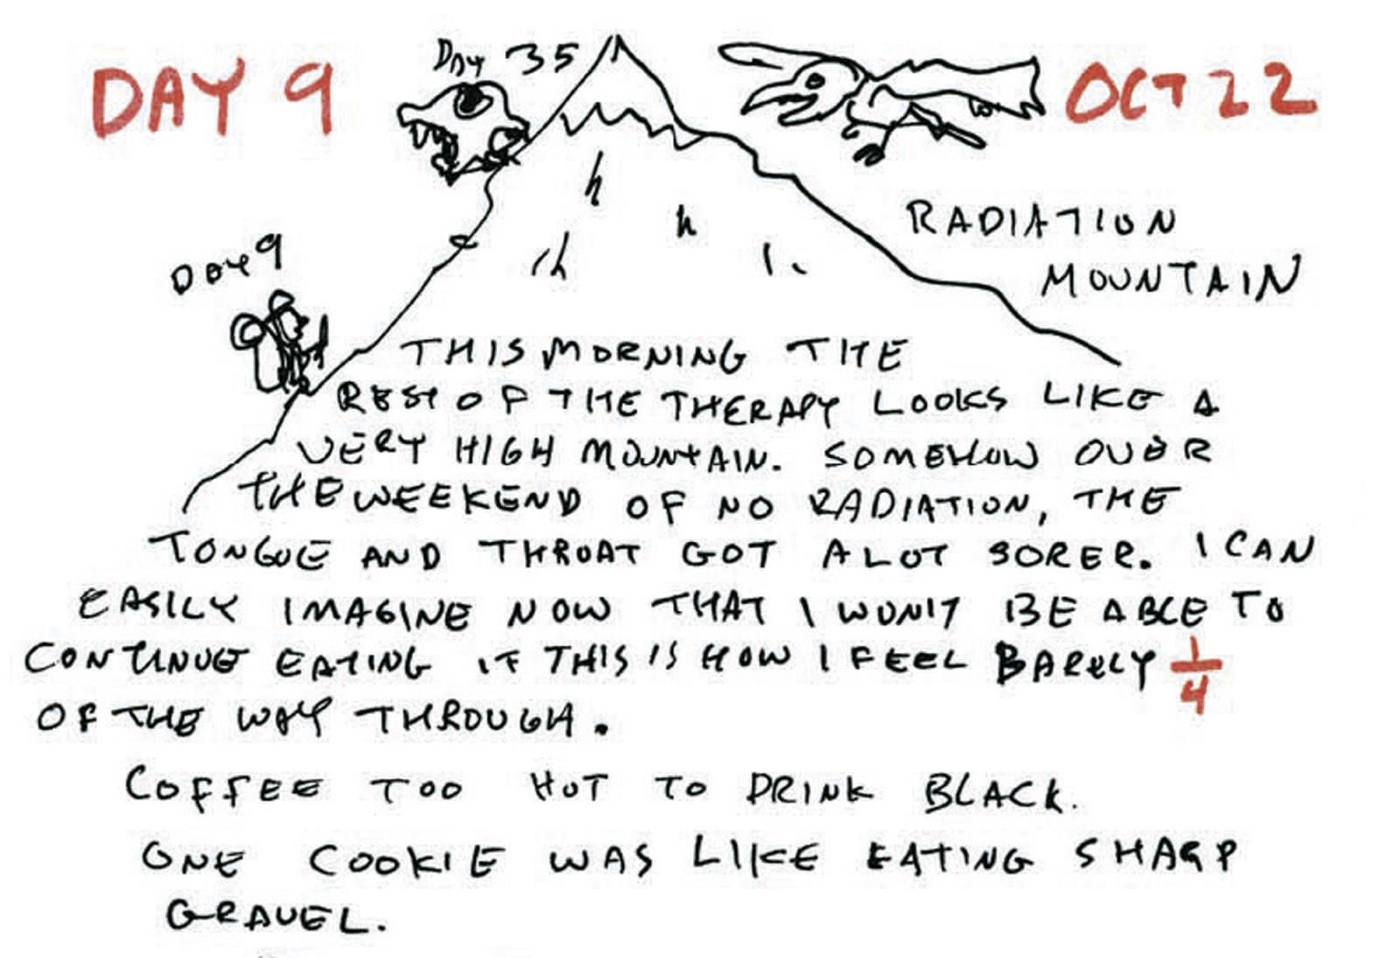 DAY 9
DAY 35
OCT 22
RADIATION
MOUNTAIN
DAY 9
THIS MORNING THE
REST OF THE THERAPY LOOKS LIKE A
VERY HIGH MOUNTAIN. SOMEHOW OVER
THE WEEKEND OF NO RADIATION, THE
TONGUE AND THROAT GOT A LOT SORER. I CAN
EASILY IMAGINE NOW THAT I WON'T BE ABLE TO
CONTINUE EATING IF THIS IS HOW I FEEL BARELY 1/4
OF THE WAY THROUGH.
COFFEE TOO HOT TO DRINK BLACK.
ONE COOKIE WAS LIKE EATING SHARP
GRAVEL.